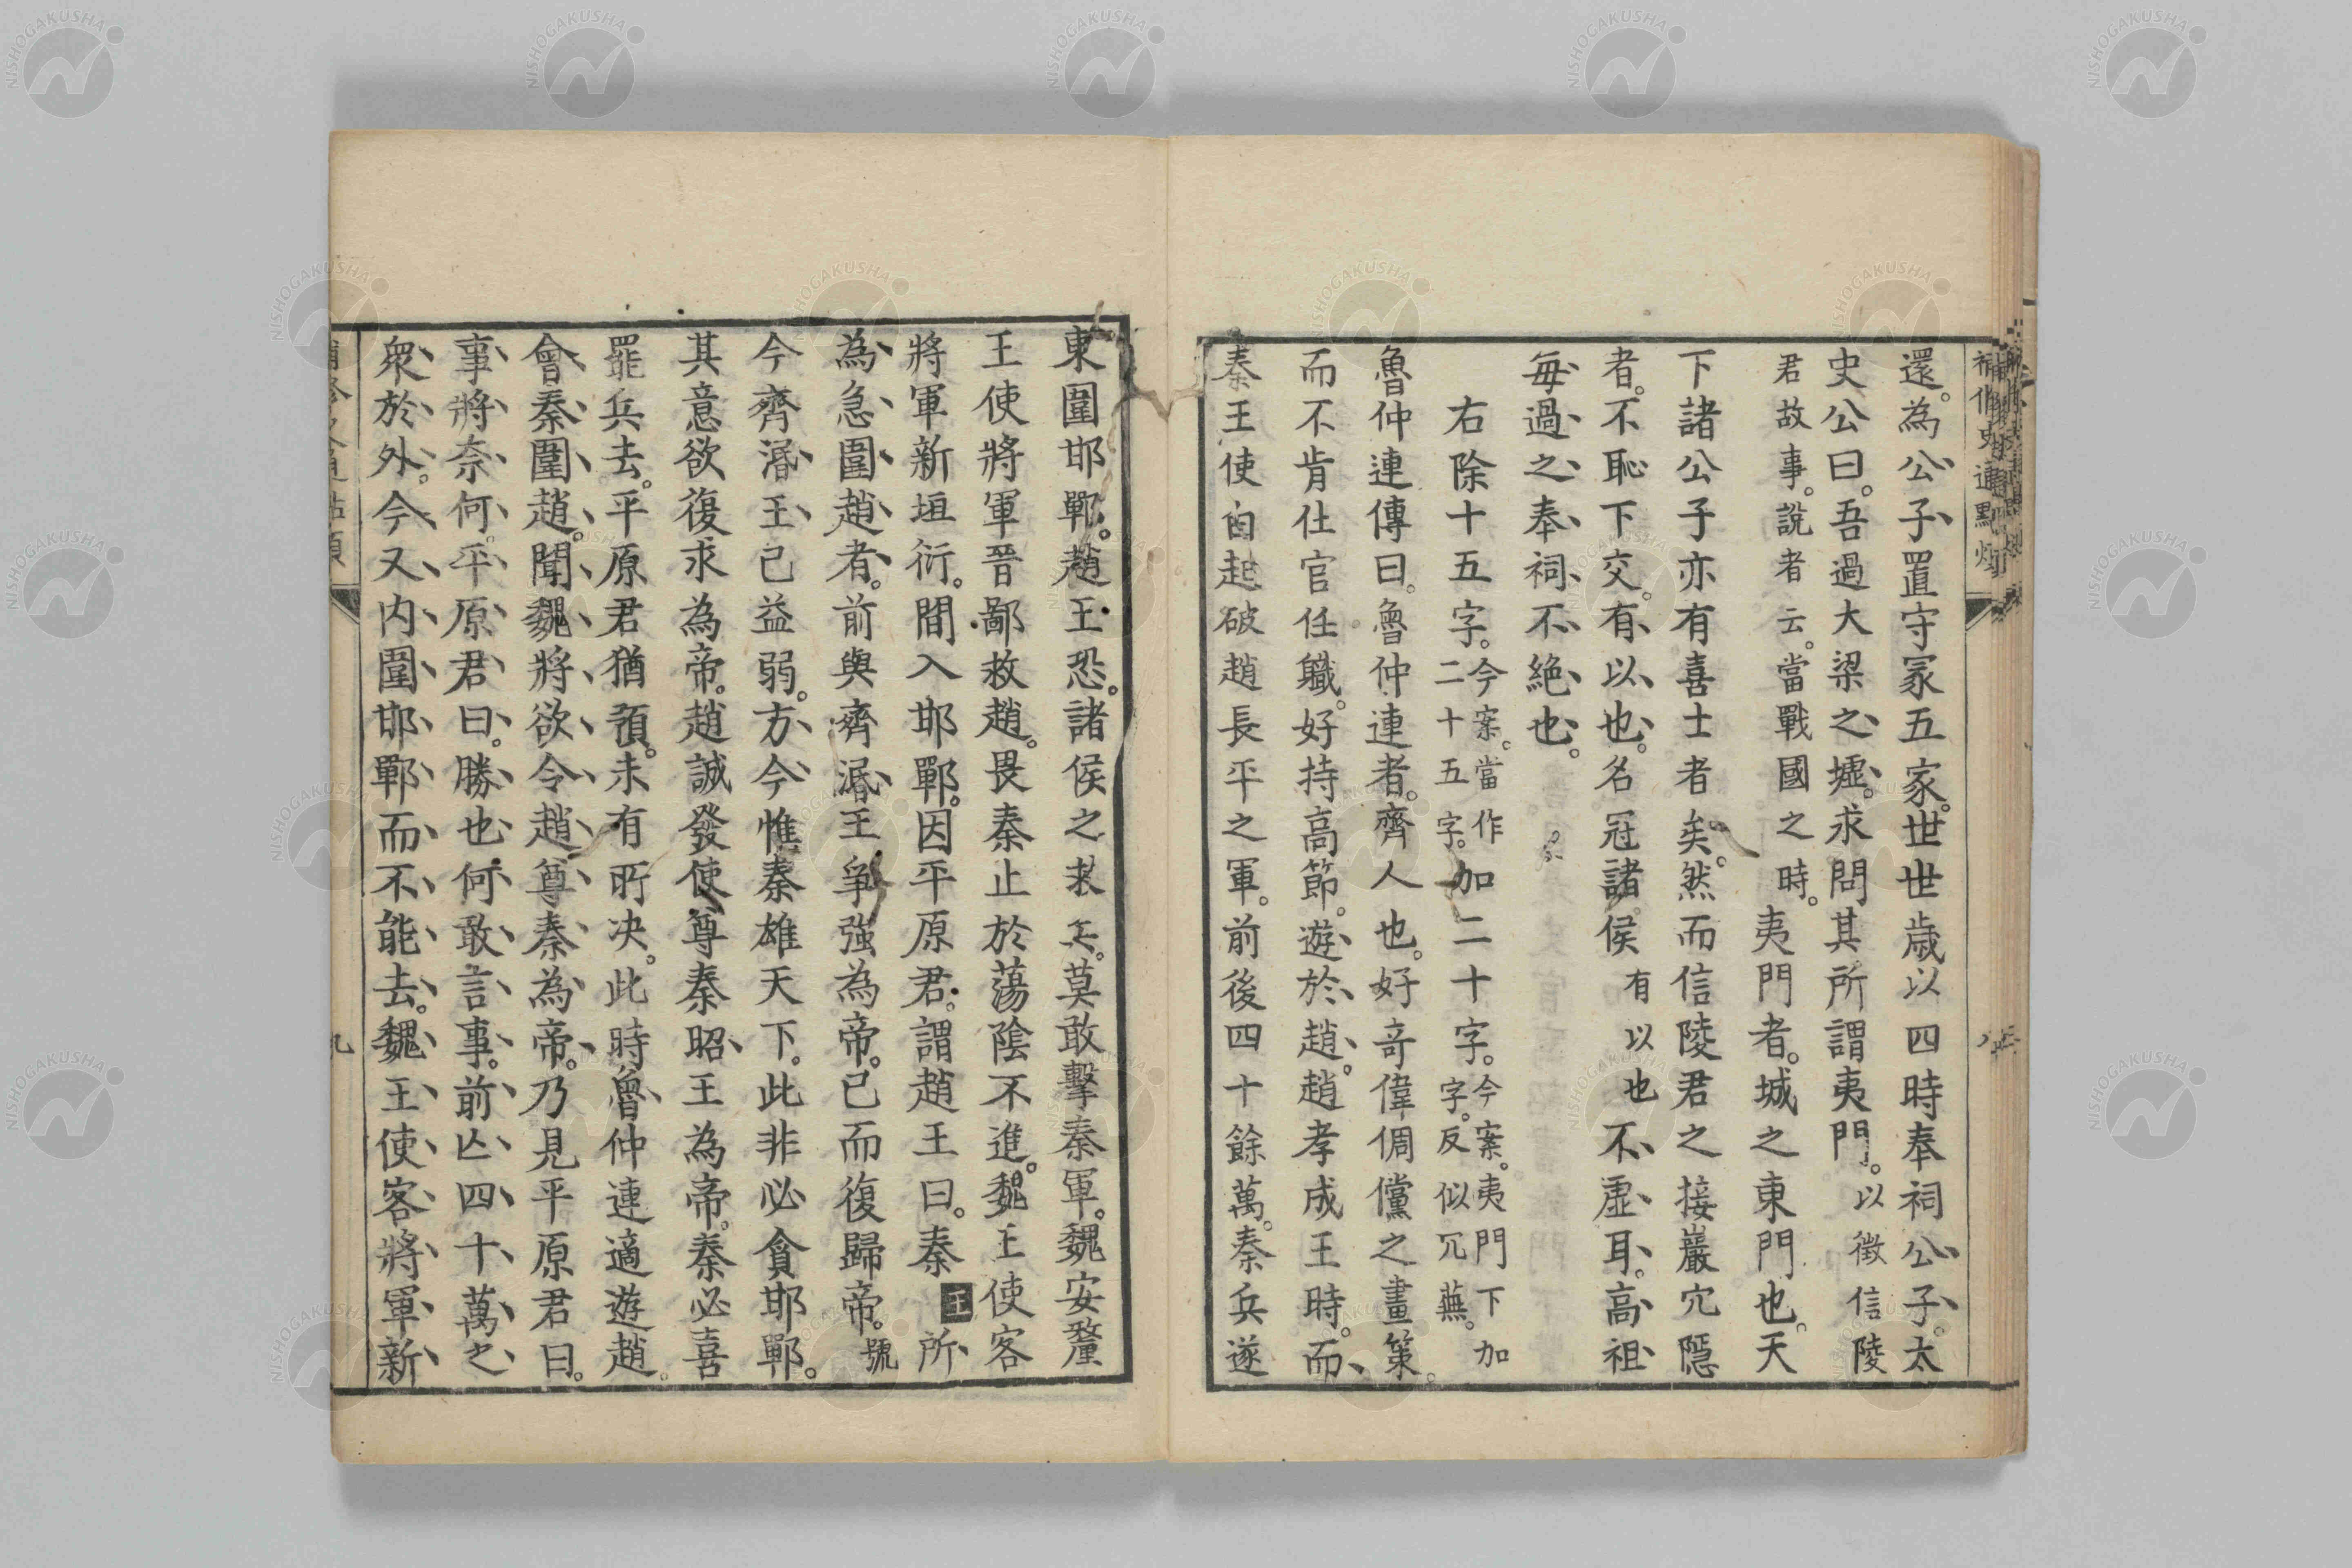 還。為公子置守冢五家。世世歲以四時奉祠公子。太
史公曰。吾過大梁之墟。求問其所謂夷門。以徵信陵
君故事。說者云。當戰國之時。夷門者。城之東門也。天
下諸公子亦有喜士者矣。然而信陵君之接巖穴隱
者。不恥下交。有以也。名冠諸侯有以也不虛耳。高祖
每過之奉祠不絕也。
右除十五字。今案。當作二十五字。加二十字。今案。夷門下加字。反似冗蕪。
魯仲連傳曰。魯仲連者。齊人也。好奇偉倜儻之畫策。
而不肯仕官任職。好持高節。遊於趙。趙孝成王時。而
秦王使白起破趙長平之軍。前後四十餘萬。秦兵遂
東圍邯鄲。趙王恐。諸侯之救兵。莫敢擊秦軍。魏安釐
王使將軍晉鄙救趙。畏秦止於蕩陰不進。魏王使客
將軍新垣衍。間入邯鄲。因平原君。謂趙王曰。秦王所
為急圍趙者。前與齊湣王爭強為帝。已而復歸帝。號
今齊湣王已益弱。方今惟秦雄天下。此非必貪邯鄲。
其意欲復求為帝。趙誠發使尊秦昭王為帝。秦必喜
罷兵去。平原君猶預。未有所决。此時魯仲連適遊趙。
會秦圍趙。聞魏將欲令趙尊秦為帝。乃見平原君曰。
事將奈何。平原君曰。勝也何敢言事。前亾四十萬之
衆於外。今又内圍邯鄲而不能去。魏王使客將軍新
九
NISHOGAKUSHA